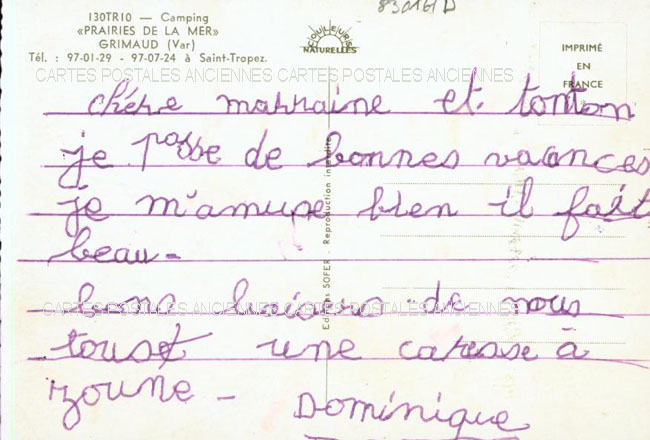 130TR10 — Camping
«PRAIRIES DE LA MER»
GRIMAUD (Var)
Tél. : 97-01-29 - 97-07-24 à Saint-Tropez.
830161D
COULEURS
NATURELLES
IMPRIMÉ
EN
FRANCE
CARTES POSTALES ANCIENNES CARTES POSTALES ANCIENNES
chère marraine et tonton
je passe de bonnes vacances
je m'amuse bien il fait
beau -
bons baisers de nous
CARTES POSTALES ANCIENNES CARTES POSTALES ANCIENNES
tous et une caresse à
zoune - Dominique
Editions SOFER - Reproduction interdite